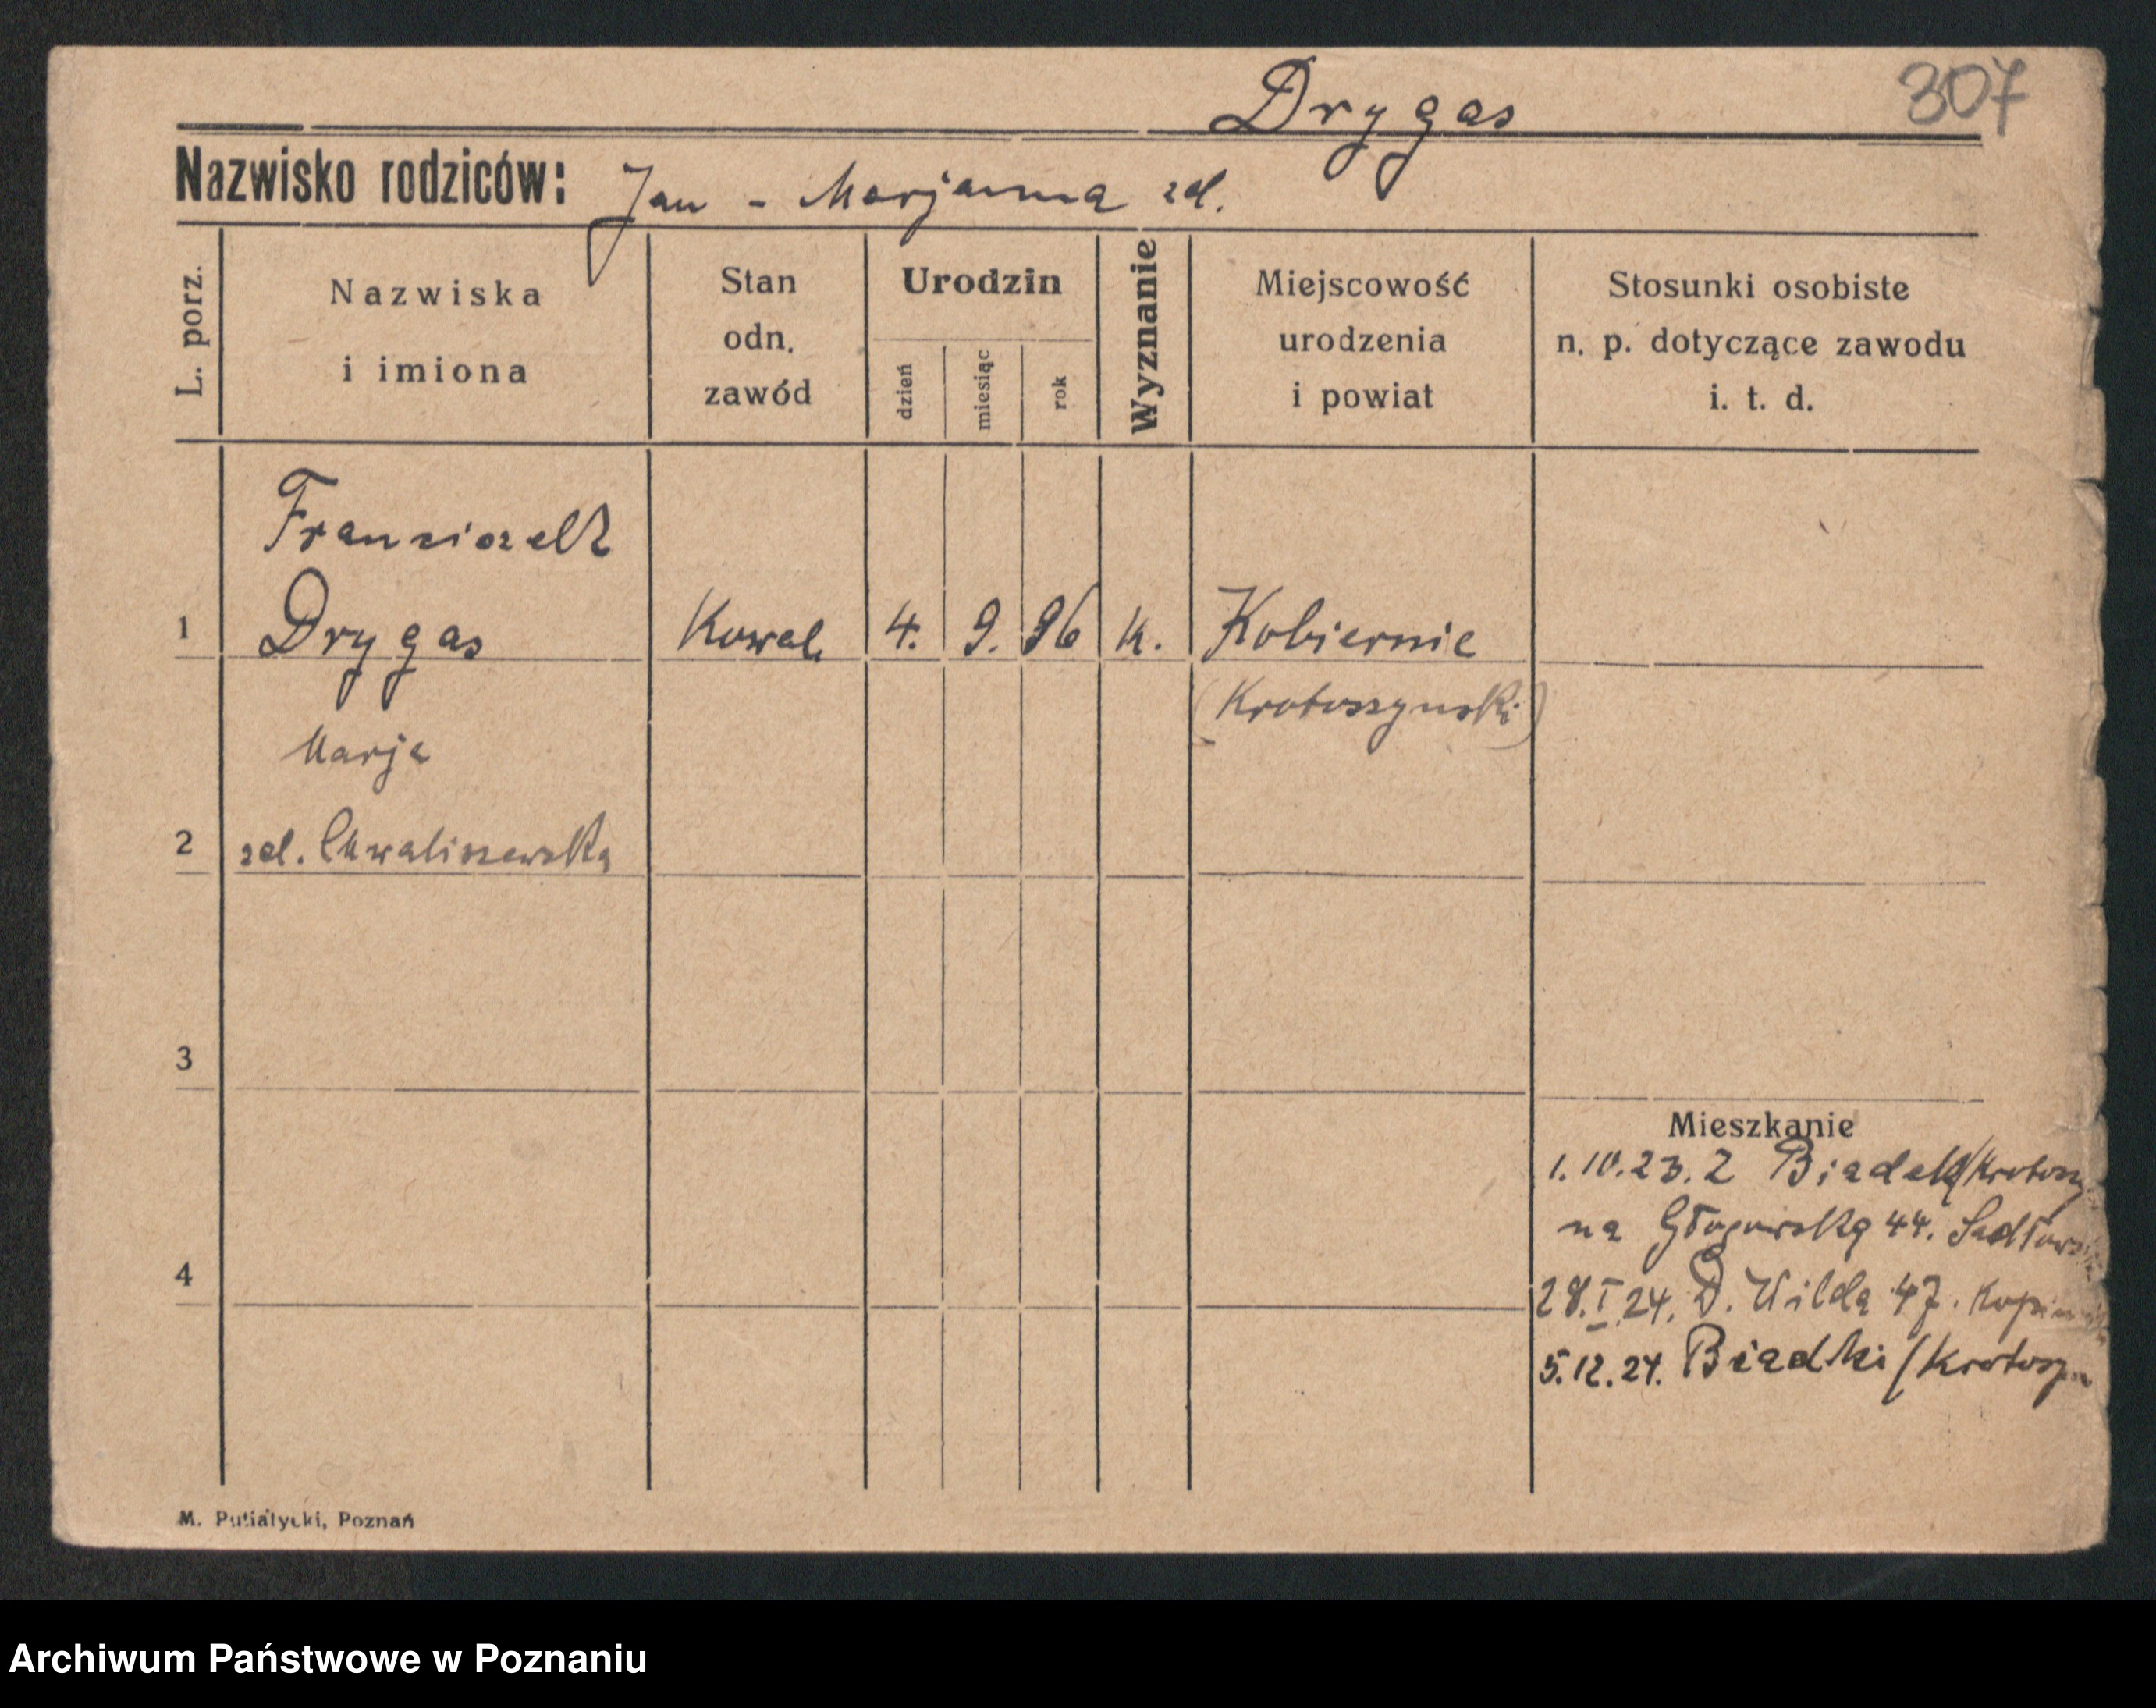 Drygas
307
Nazwisko rodziców: Jan - Marjanna zd.
L. porz.
Nazwiska
i imiona
Stan
odn.
zawód
Urodzin
dzień
miesiąc
rok
Wyznanie
Miejscowość
urodzenia
i powiat
Stosunki osobiste
n. p. dotyczące zawodu
i. t. d.
Franciszek
1 Drygas Kowal. 4. 9. 96 k. Kobiernie
(Krotoszynski)
Marja
2 zd. Chwaliszewska
3
Mieszkanie
1.10.23. z Biadek/Krotosz
na Głogowską 44.
4
28.I.24. D. Wilda 47.
5.12.24. Biadki (Krotosz
M. Putiatycki, Poznań
Archiwum Państwowe w Poznaniu